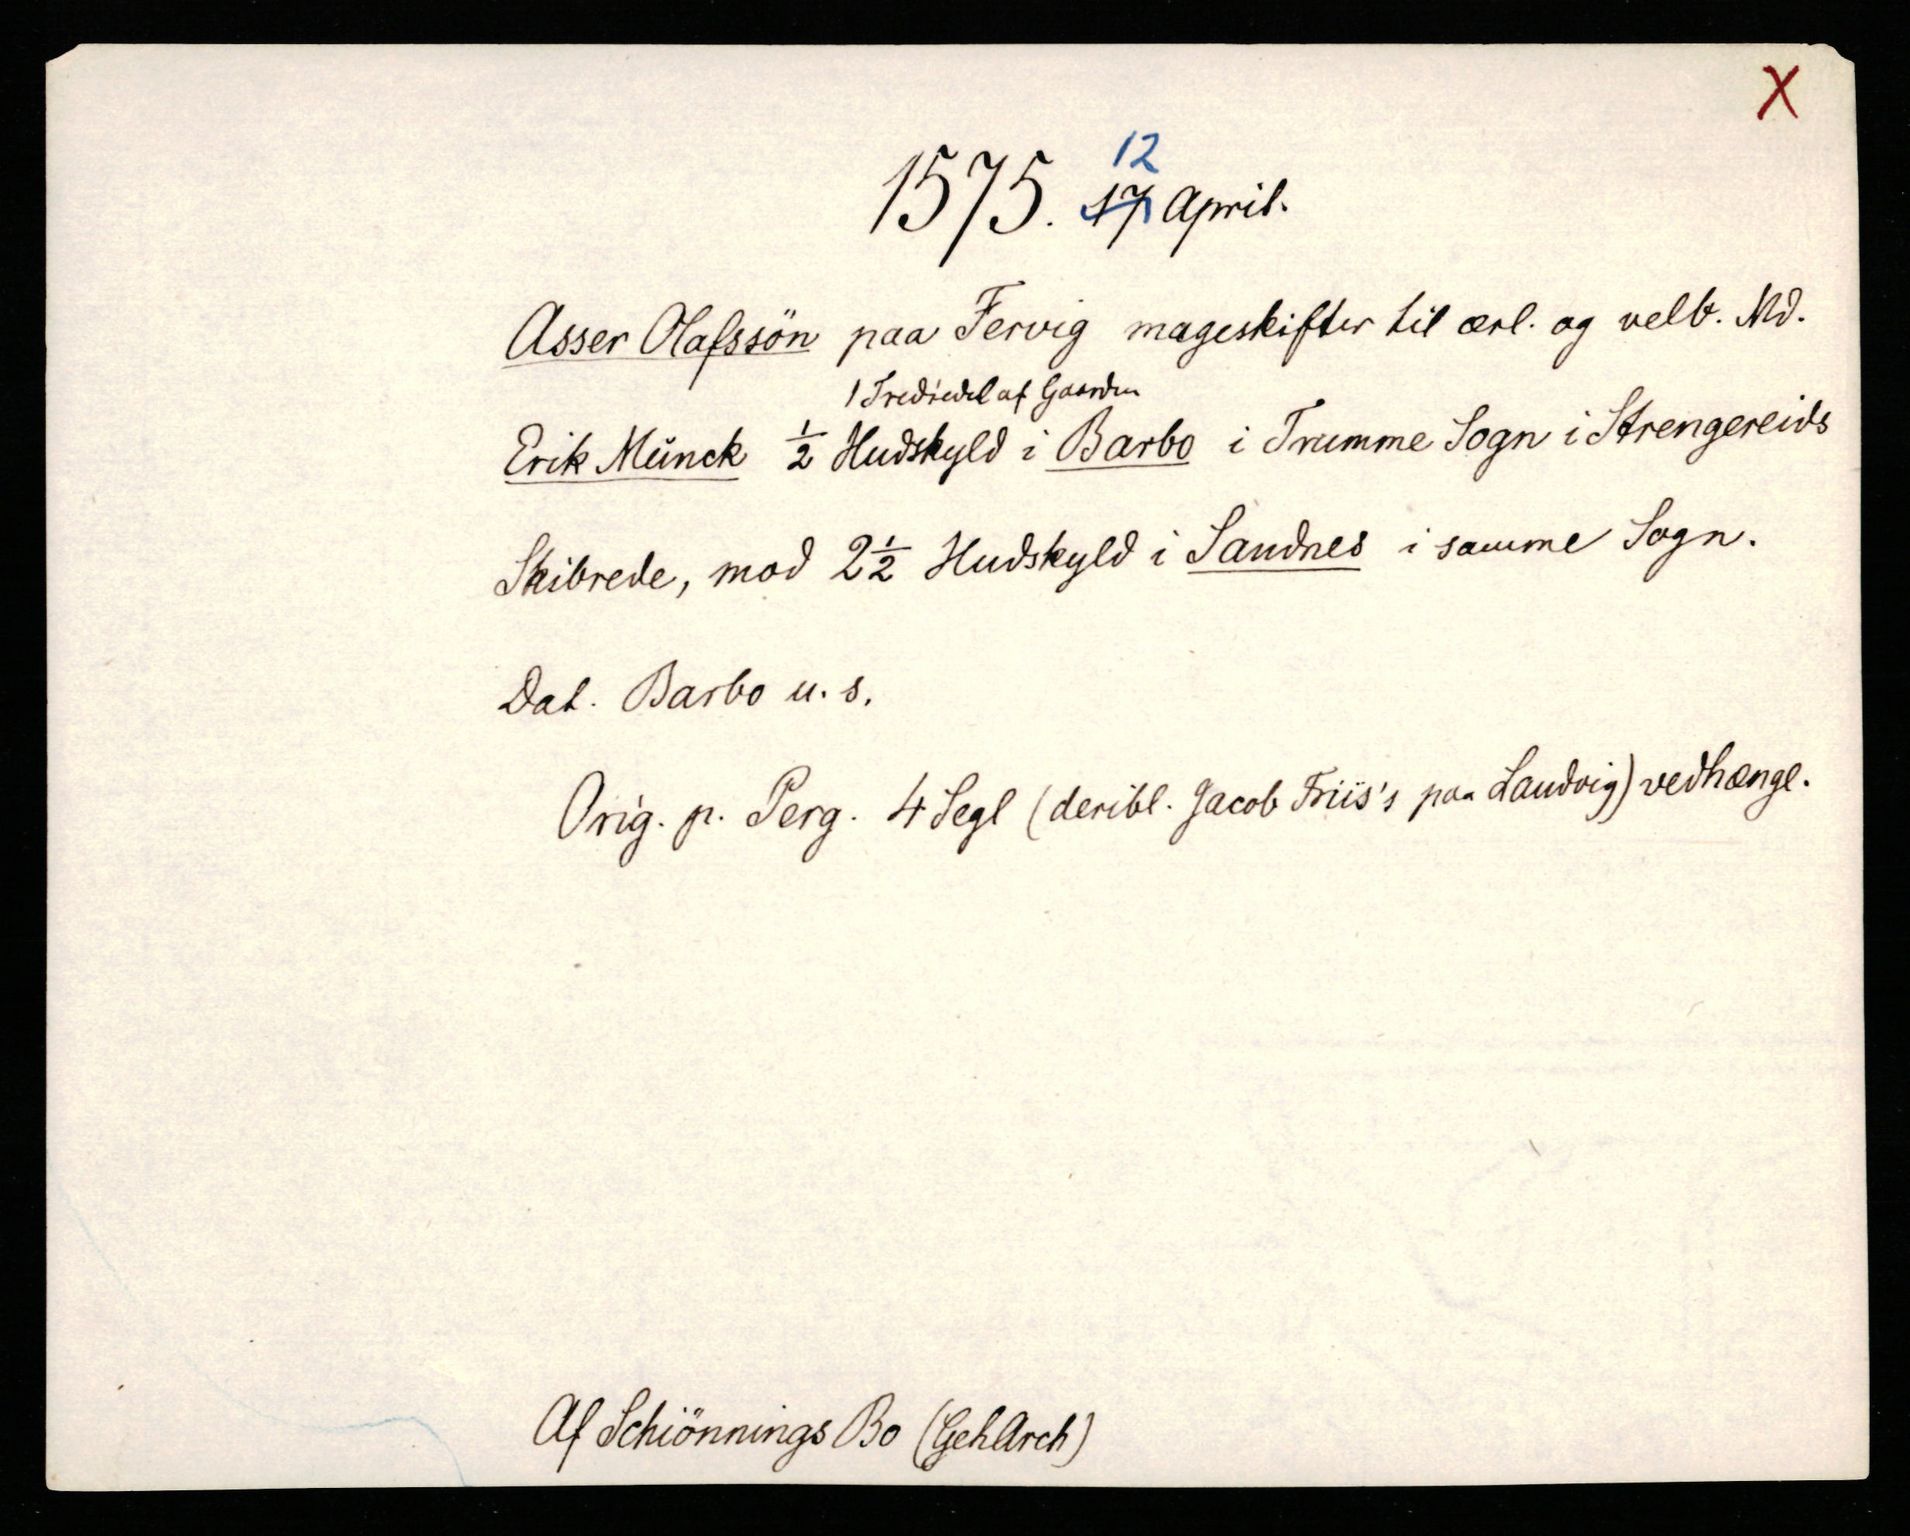 X
12
1575. 17 April.
Asser Olafssön paa Fervig mageskifter til ærl. og velb. Md.
1 Trediedel af Gaarden
Erik Munck ½ Hudskyld i Barbo i Trumme Sogn i Strengereids
Skibrede, mod 2½ Hudskyld i Sandnes i samme Sogn.
Dat. Barbo u. s.
Orig. p. Perg. 4 Segl (deribl. Jacob Friis's paa Landvig) vedhænge.
Af Schiönnings Bo (GehArch)